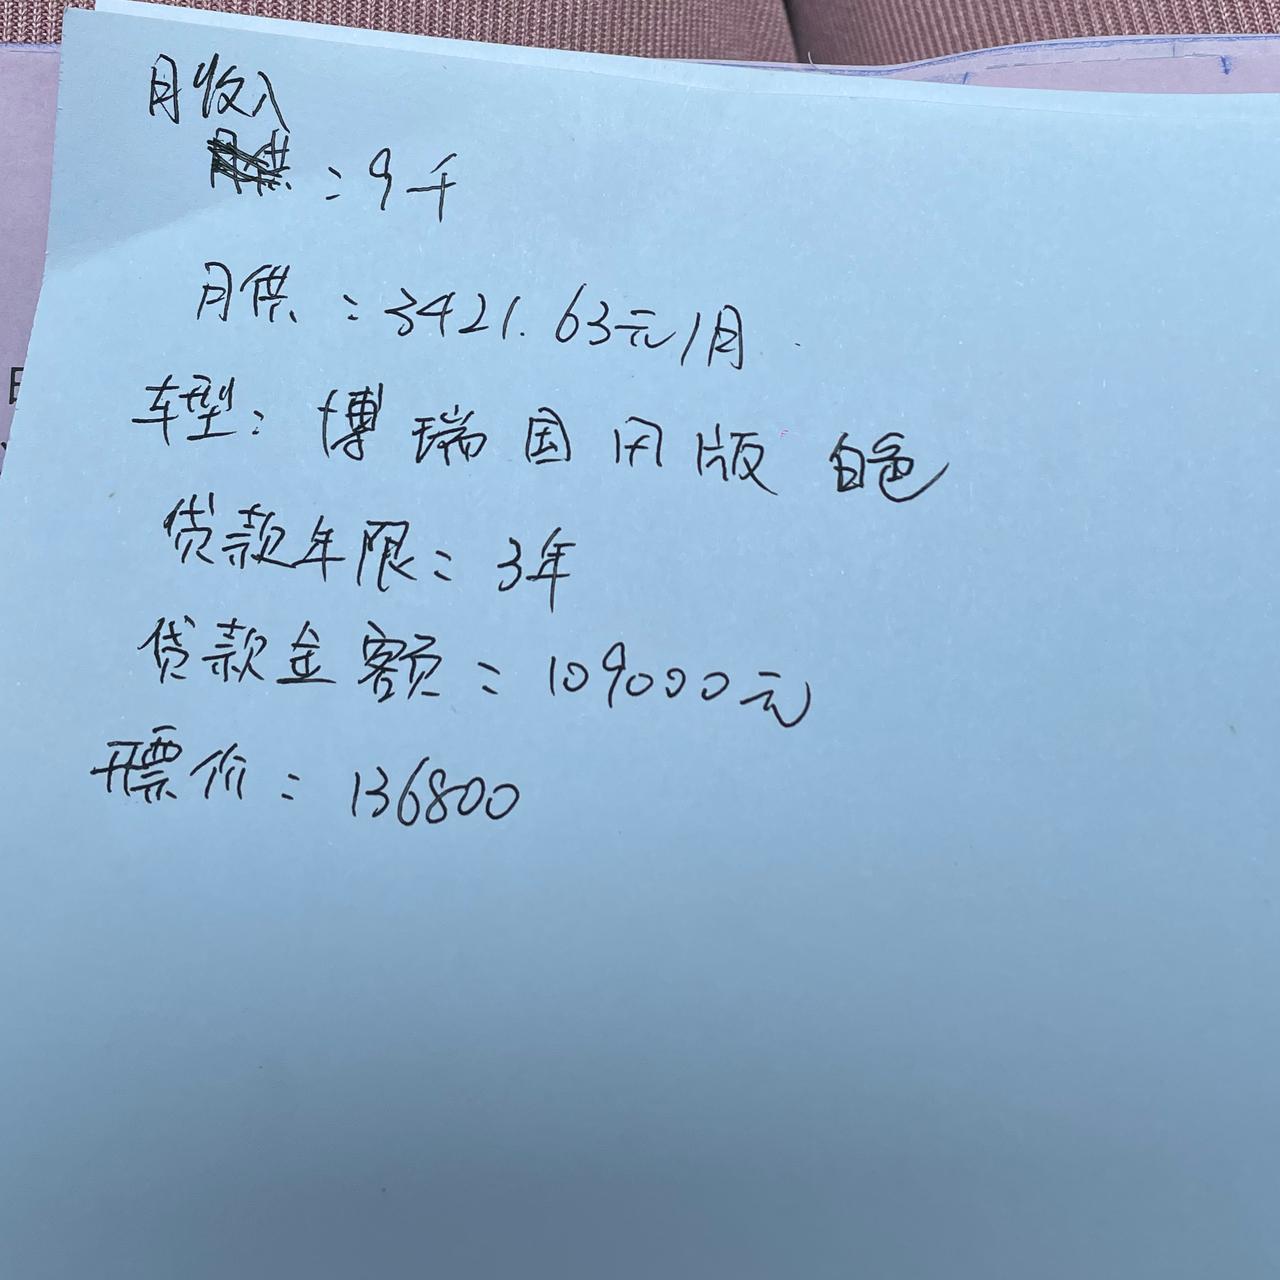 月收入
月供：9千
月供：3421.63元/月
车型：博瑞国用版 白色
贷款年限：3年
贷款金额：109000元
开票价：136800